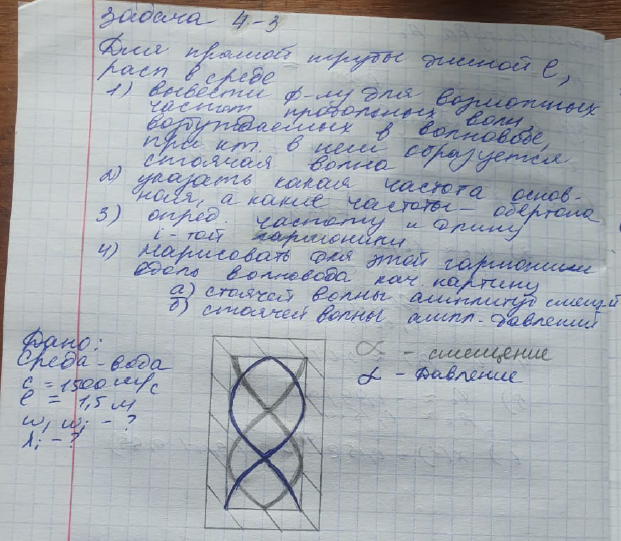 Задача 4-3
Для прямой трубы длиной l,
расп в среде
1) вывести ф-лу для возможных
частот продольных волн,
возбуждаемых в волноводе,
при кт. в нем образуется
стоячая волна
2) указать какая частота основ-
ная, а какие частоты - обертона
3) опред. частоту и длину
i-той гармоники
4) Нарисовать для этой гармоники
вдоль волновода кач. картину
а) стоячей волны амплитуд смещ-й
б) стоячей волны ампл. давлений
Дано:
среда - вода
c = 1500 м/с
l = 1,5 м
ω, ωi - ?
λi - ?
α - смещение
α - давление